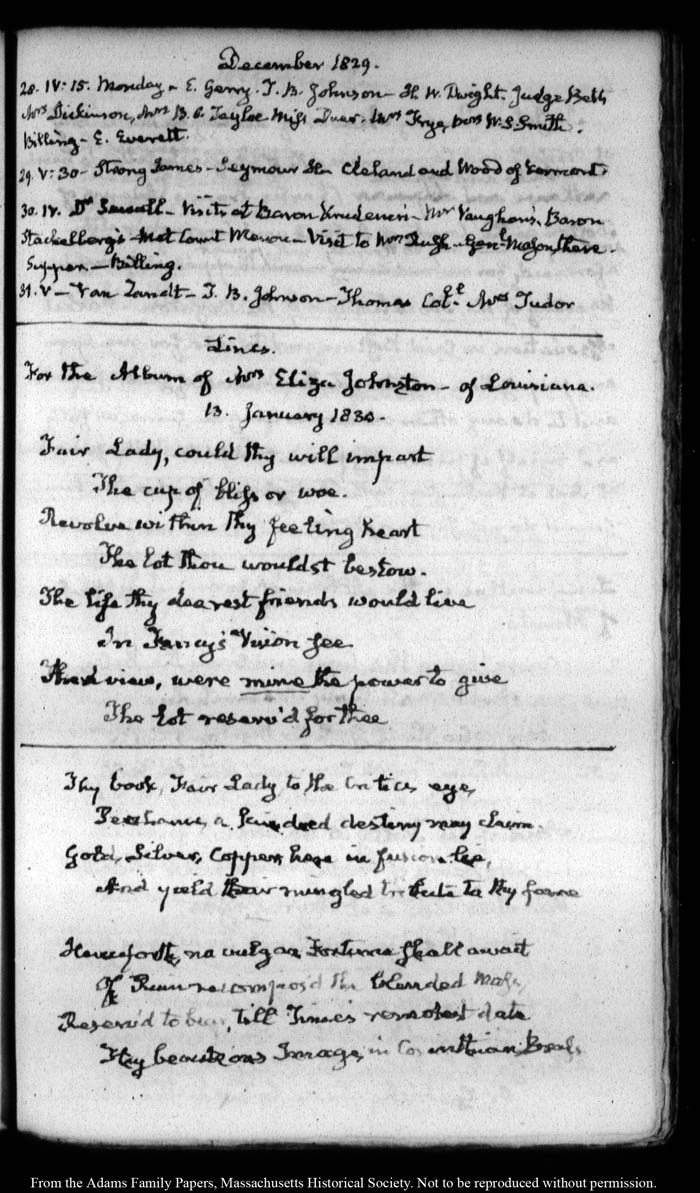 December 1829.
28. IV: 15. Monday - E. Gerry. T. B. Johnson - H. W. Dwight. Judge Betts
Mrs Dickinson, Mrs B. O. Tayloe Miss Duer. Mrs Frye, Mrs W. S. Smith.
Billing - E. Everett.
29. V: 30 - Strong James - Seymour and Wood of Vermont.
30. IV. Dr Sewall - Visits at Baron Krudener's - Mr Vaughan's. Baron
Stackelberg's - Met Count Menou - Visit to Mrs Rush - Genl Mason, there.
Supper - Billing.
31. V - Van Zandt - T. B. Johnson - Thomas Mrs Tudor
Lines.
For the Album of Mrs Eliza Johnston - of Louisiana.
13. January 1830.
Fair Lady, could thy will impart
The cup of bliss or woe.
Revolve within thy feeling heart
The lot thou wouldst bestow.
The life thy dearest friends would live
In Fancy's Vision see
Then view, were mine the power to give
The lot reserv'd for thee
Thy book, Fair Lady to the Critics eye,
Perchance, a kindred destiny may claim.
Gold, Silver, Copper, here in fusion lie,
And yield their mingled tribute to thy fame
Henceforth, no vulgar Fortune shall await
Of Ruin recompos'd the blended Mass,
Reserv'd to bear, till Time's remotest date
Thy beauteous Image, in Corinthian Brass
From the Adams Family Papers, Massachusetts Historical Society. Not to be reproduced without permission.